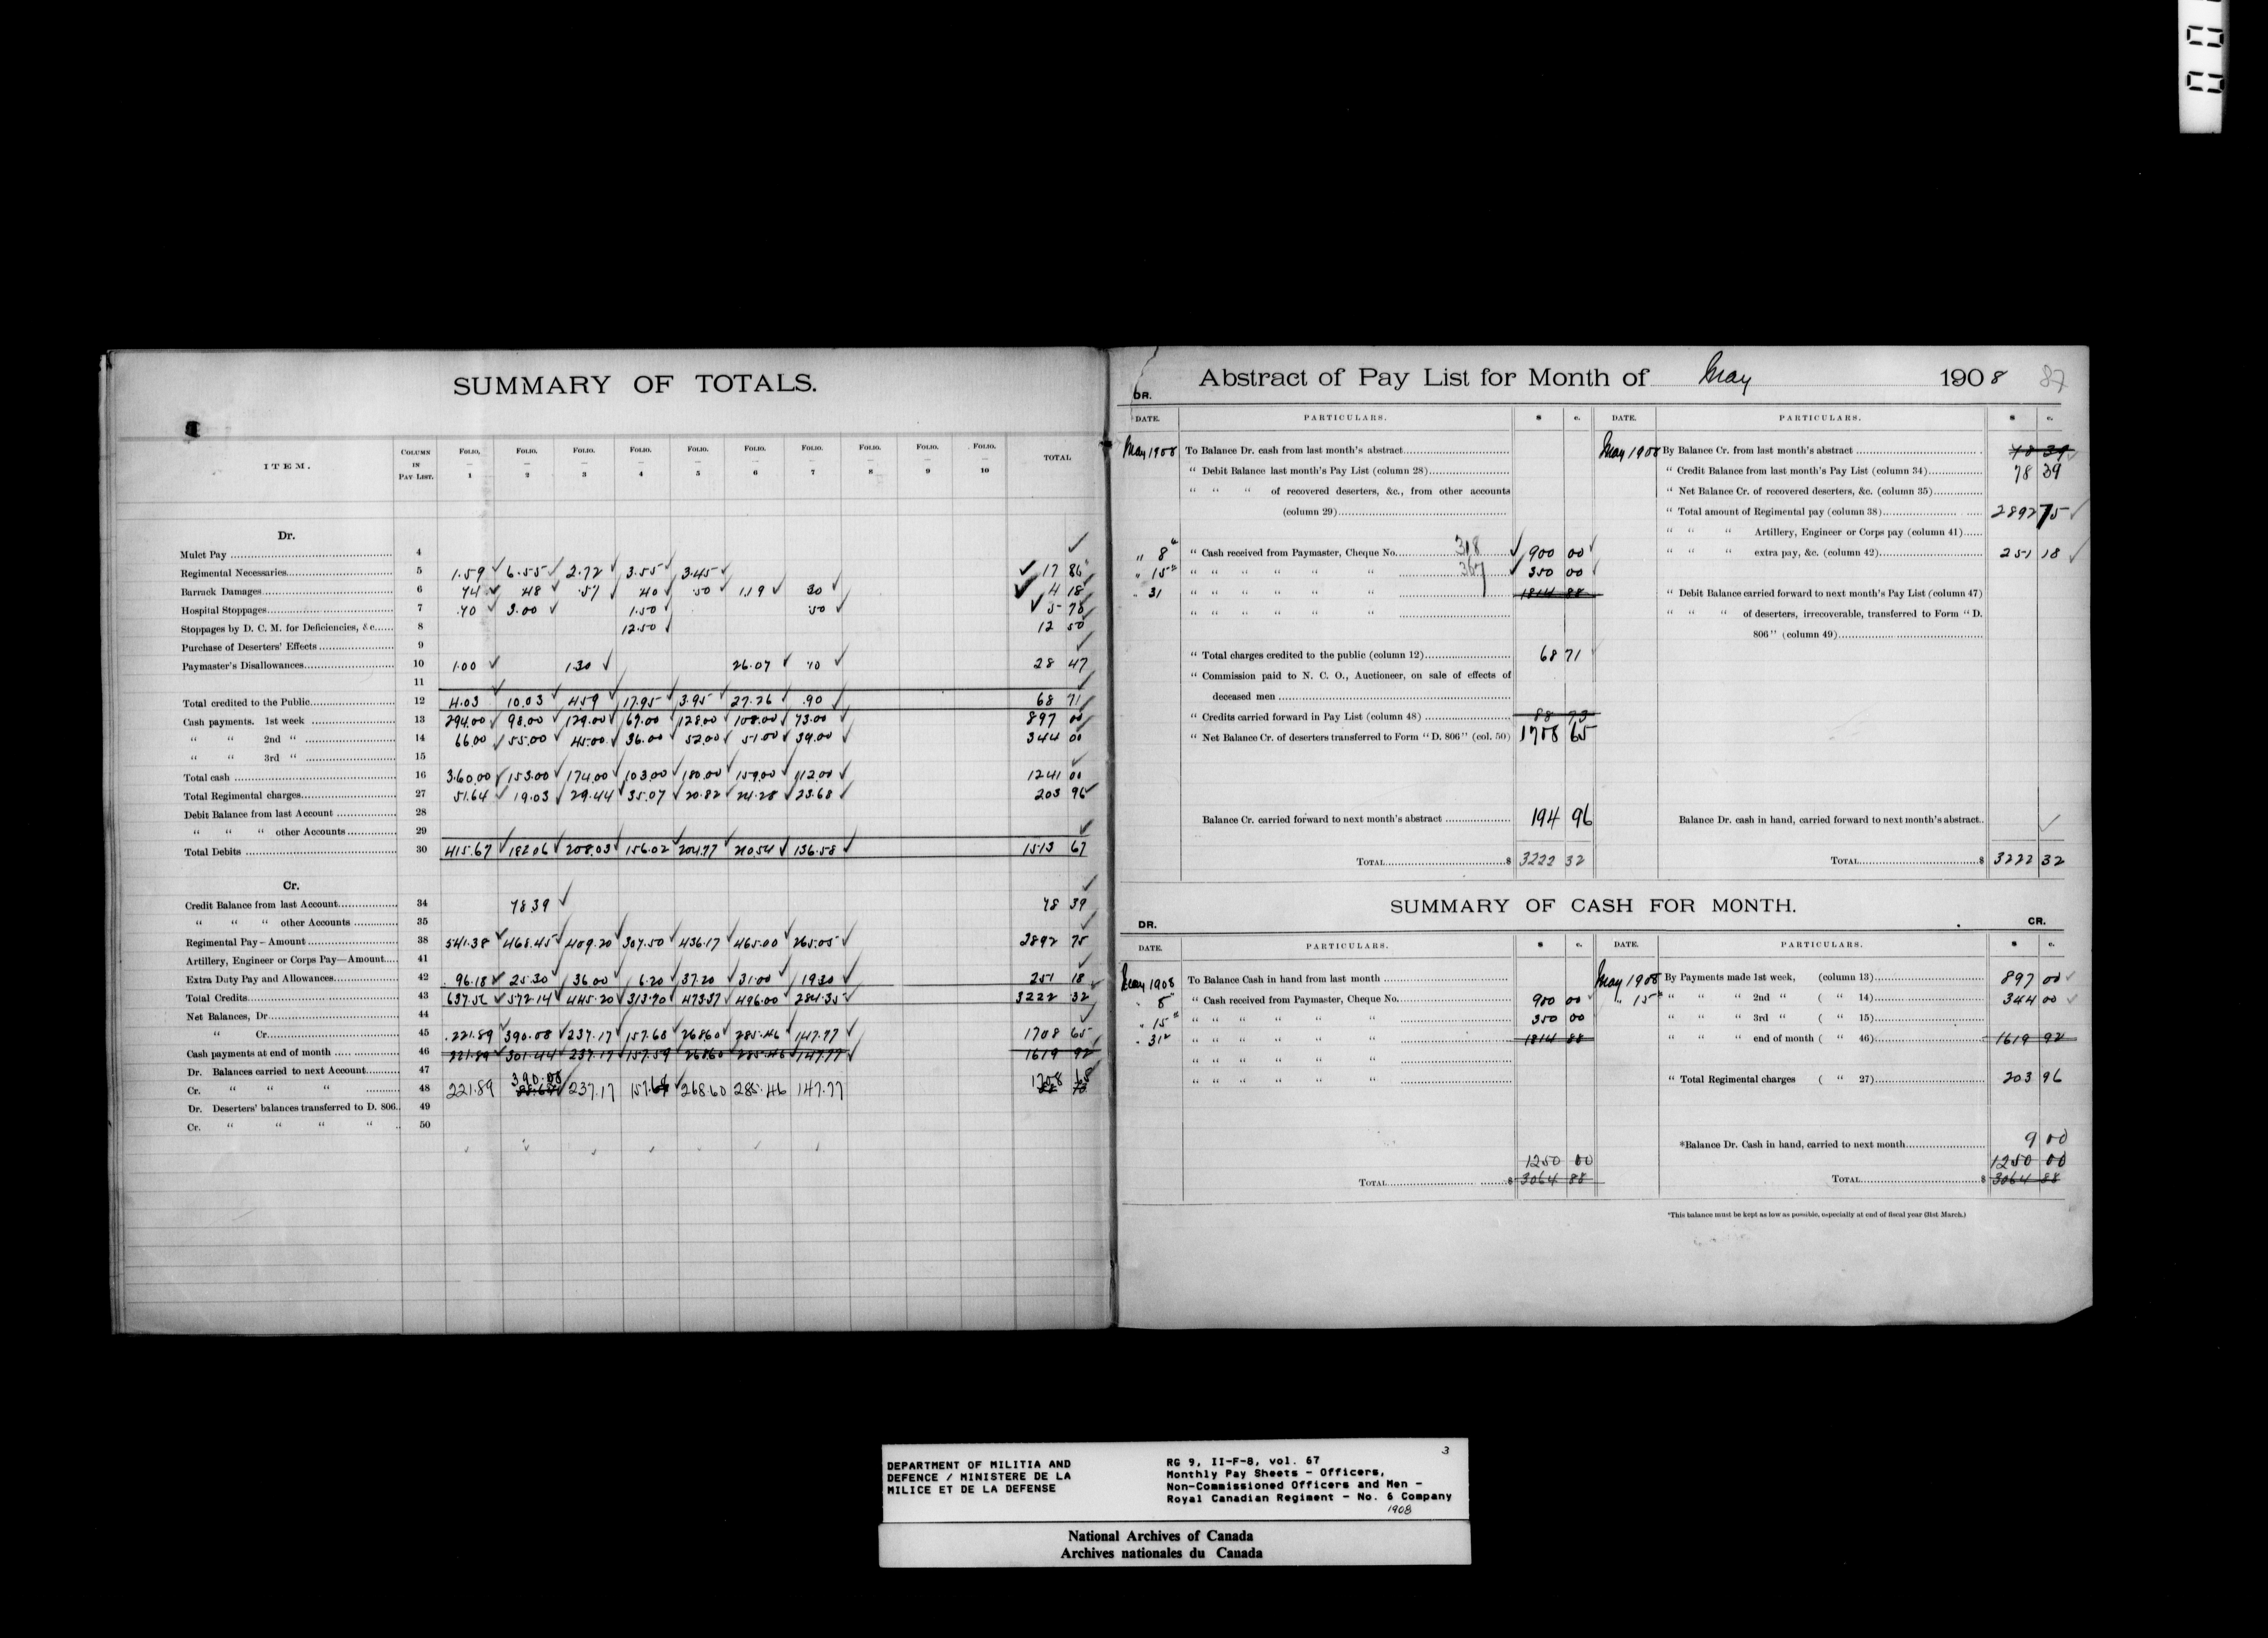 SUMMARY OF TOTALS.
ITEM. COLUMN IN PAY LIST. FOLIO, 1 FOLIO. 2 FOLIO. 3 FOLIO. 4 FOLIO. 5 FOLIO. 6 FOLIO. 7 FOLIO. 8 FOLIO. 9 FOLIO. 10 TOTAL
Dr.
Mulct Pay 4 ✓
Regimental Necessaries 5 1.59 ✓ 6.55 ✓ 2.72 ✓ 3.55 ✓ 3.45 ✓ ✓ 17 86
Barrack Damages 6 74 ✓ 48 .57 40 .50 1.19 ✓ 30 ✓ ✓ 4 18
Hospital Stoppages 7 .70 ✓ 3.00 ✓ 1.50 ✓ .50 ✓ ✓ 5 70
Stoppages by D. C. M. for Deficiencies, &c 8 12.50 ✓ 12 50
Purchase of Deserters' Effects 9 ✓
Paymaster's Disallowances 10 1.00 ✓ 1.30 ✓ 26.07 ✓ 10 ✓ 28 47
11
Total credited to the Public 12 4.03 10.03 4.59 17.95 3.95 27.26 .90 68 71
Cash payments. 1st week 13 294.00 98.00 129.00 67.00 128.00 108.00 73.00 897 00
" " 2nd " 14 66.00 55.00 45.00 36.00 52.00 51.00 39.00 344 00
" " 3rd " 15 ✓
Total cash 16 360.00 153.00 174.00 103.00 180.00 159.00 112.00 1241 00
Total Regimental charges 27 51.64 19.03 29.44 35.07 20.82 24.28 23.68 203 96
Debit Balance from last Account 28
" " " other Accounts 29 ✓
Total Debits 30 415.67 182.06 208.03 156.02 204.77 210.54 136.58 1513 67
Cr.
Credit Balance from last Account 34 78.39 ✓ 78 39
" " " other Accounts 35 ✓
Regimental Pay—Amount 38 541.38 468.45 409.20 307.50 436.17 465.00 265.05 2892 75
Artillery, Engineer or Corps Pay—Amount 41 ✓
Extra Duty Pay and Allowances 42 96.18 25.30 36.00 6.20 37.20 31.00 19.30 251 18
Total Credits 43 637.56 572.14 445.20 313.70 473.37 496.00 284.35 3222 32
Net Balances, Dr 44 ✓
" Cr 45 221.89 390.08 237.17 157.68 268.60 285.46 147.77 1708 65
Cash payments at end of month 46 221.89 301.44 237.17 157.59 268.60 285.46 147.77 1619 92
Dr. Balances carried to next Account 47
Cr. " " " 48 221.89 390.08 237.17 157.68 268.60 285.46 147.77 1708 65
Dr. Deserters' balances transferred to D. 806 49
Cr. " " " " 50
Abstract of Pay List for Month of May 1908 87
DR.
DATE. PARTICULARS. $ c. DATE. PARTICULARS. $ c.
May 1908 To Balance Dr. cash from last month's abstract
" Debit Balance last month's Pay List (column 28)
" " " of recovered deserters, &c., from other accounts
(column 29)
" 8 " Cash received from Paymaster, Cheque No. 318 ✓ 900 00
" 15 " " " " " " 367 ✓ 350 00
" 31 " " " " " " 1814 88
" " " " " "
" Total charges credited to the public (column 12) 68 71
" Commission paid to N. C. O., Auctioneer, on sale of effects of
deceased men
" Credits carried forward in Pay List (column 48) 88 73
" Net Balance Cr. of deserters transferred to Form "D. 806" (col. 50) 1708 65
Balance Cr. carried forward to next month's abstract 194 96
TOTAL $ 3222 32
May 1908 By Balance Cr. from last month's abstract 78 39
" Credit Balance from last month's Pay List (column 34) 78 39
" Net Balance Cr. of recovered deserters, &c. (column 35)
" Total amount of Regimental pay (column 38) 2892 75 ✓
" " " Artillery, Engineer or Corps pay (column 41)
" " " extra pay, &c. (column 42) 251 18 ✓
" Debit Balance carried forward to next month's Pay List (column 47)
" " " of deserters, irrecoverable, transferred to Form "D.
806" (column 49)
Balance Dr. cash in hand, carried forward to next month's abstract ✓
TOTAL $ 3222 32
SUMMARY OF CASH FOR MONTH.
DR. CR.
DATE. PARTICULARS. $ c. DATE. PARTICULARS. $ c.
May 1908 To Balance Cash in hand from last month
" 8 " Cash received from Paymaster, Cheque No. 900 00
" 15 " " " " " " 350 00
" 31 " " " " " " 1814 88
" " " " " "
" " " " " "
1250 00
TOTAL $ 3064 88
May 1908 By Payments made 1st week, (column 13) 897 00 ✓
" 15 " " " 2nd " ( " 14) 344 00 ✓
" " " 3rd " ( " 15)
" " " end of month ( " 46) 1619 92
" Total Regimental charges ( " 27) 203 96
*Balance Dr. Cash in hand, carried to next month 9 00
1250 00
TOTAL $ 3064 88
*This balance must be kept as low as possible, especially at end of fiscal year (31st March.)
3
DEPARTMENT OF MILITIA AND
DEFENCE / MINISTERE DE LA
MILICE ET DE LA DEFENSE
RG 9, II-F-8, vol. 67
Monthly Pay Sheets - Officers,
Non-Commissioned Officers and Men -
Royal Canadian Regiment - No. 6 Company
1908
National Archives of Canada
Archives nationales du Canada